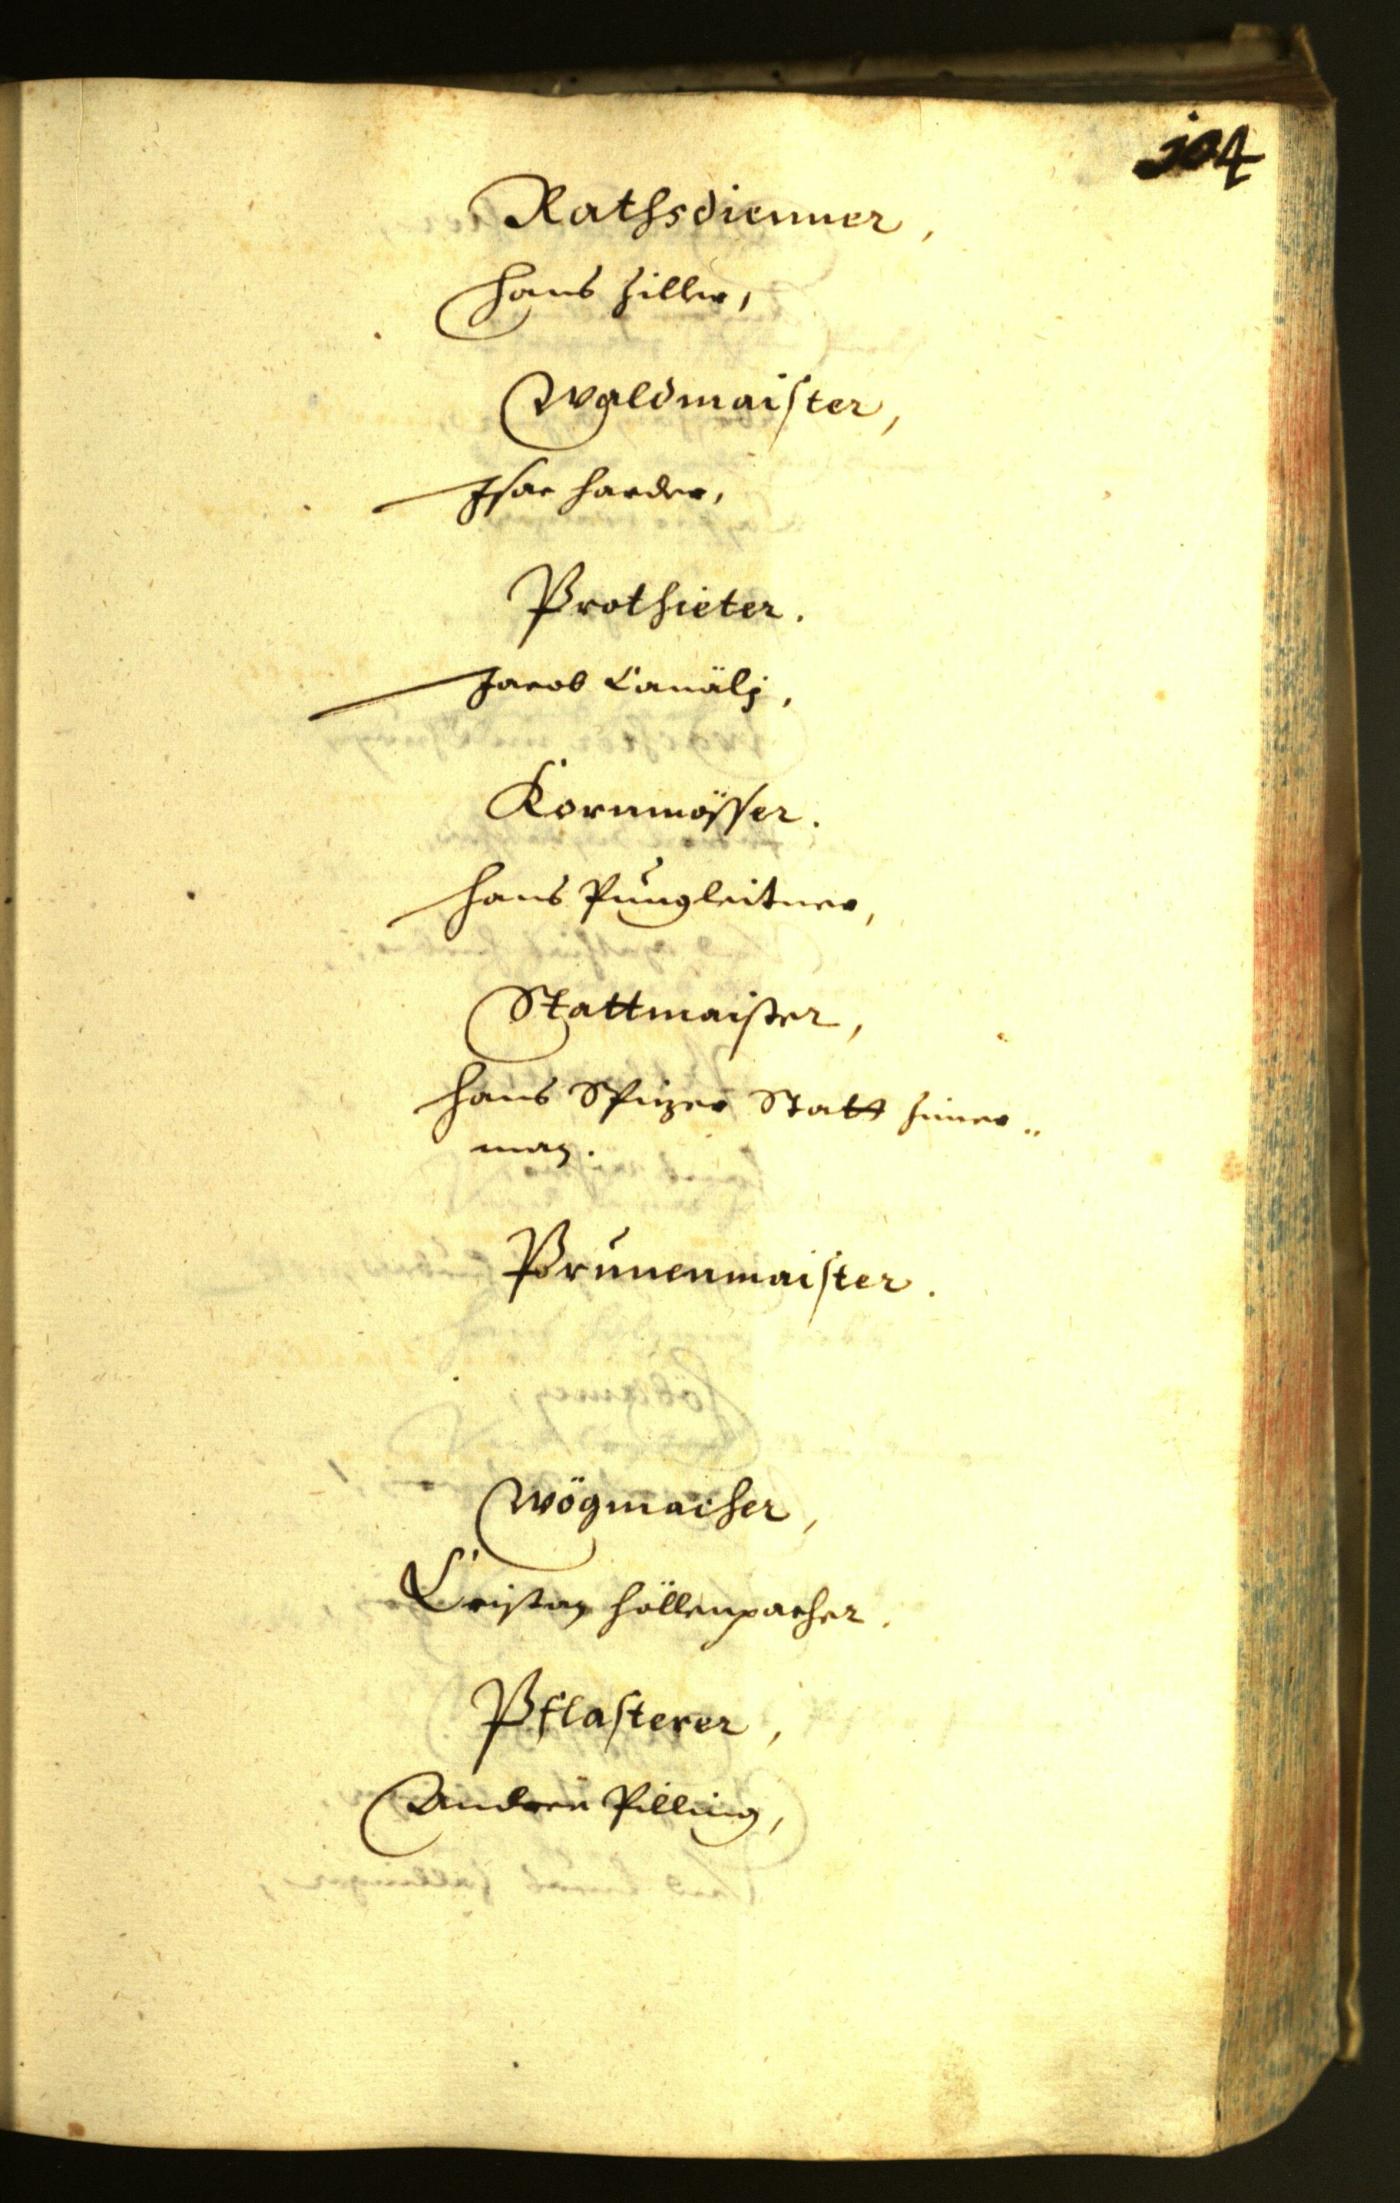 104
Rathsdienner,
Hans Ziller,
Waldmaister,
Isac Harder,
Prothieter.
Jacob Canälj,
Kornmösser.
Hans Pungleitner,
Stattmaister,
Hans Spizer Statt Zimer„
man.
Prunenmaister.
Wögmacher,
Cristan Höllenpacher.
Pflasterer,
Andree Pilling,